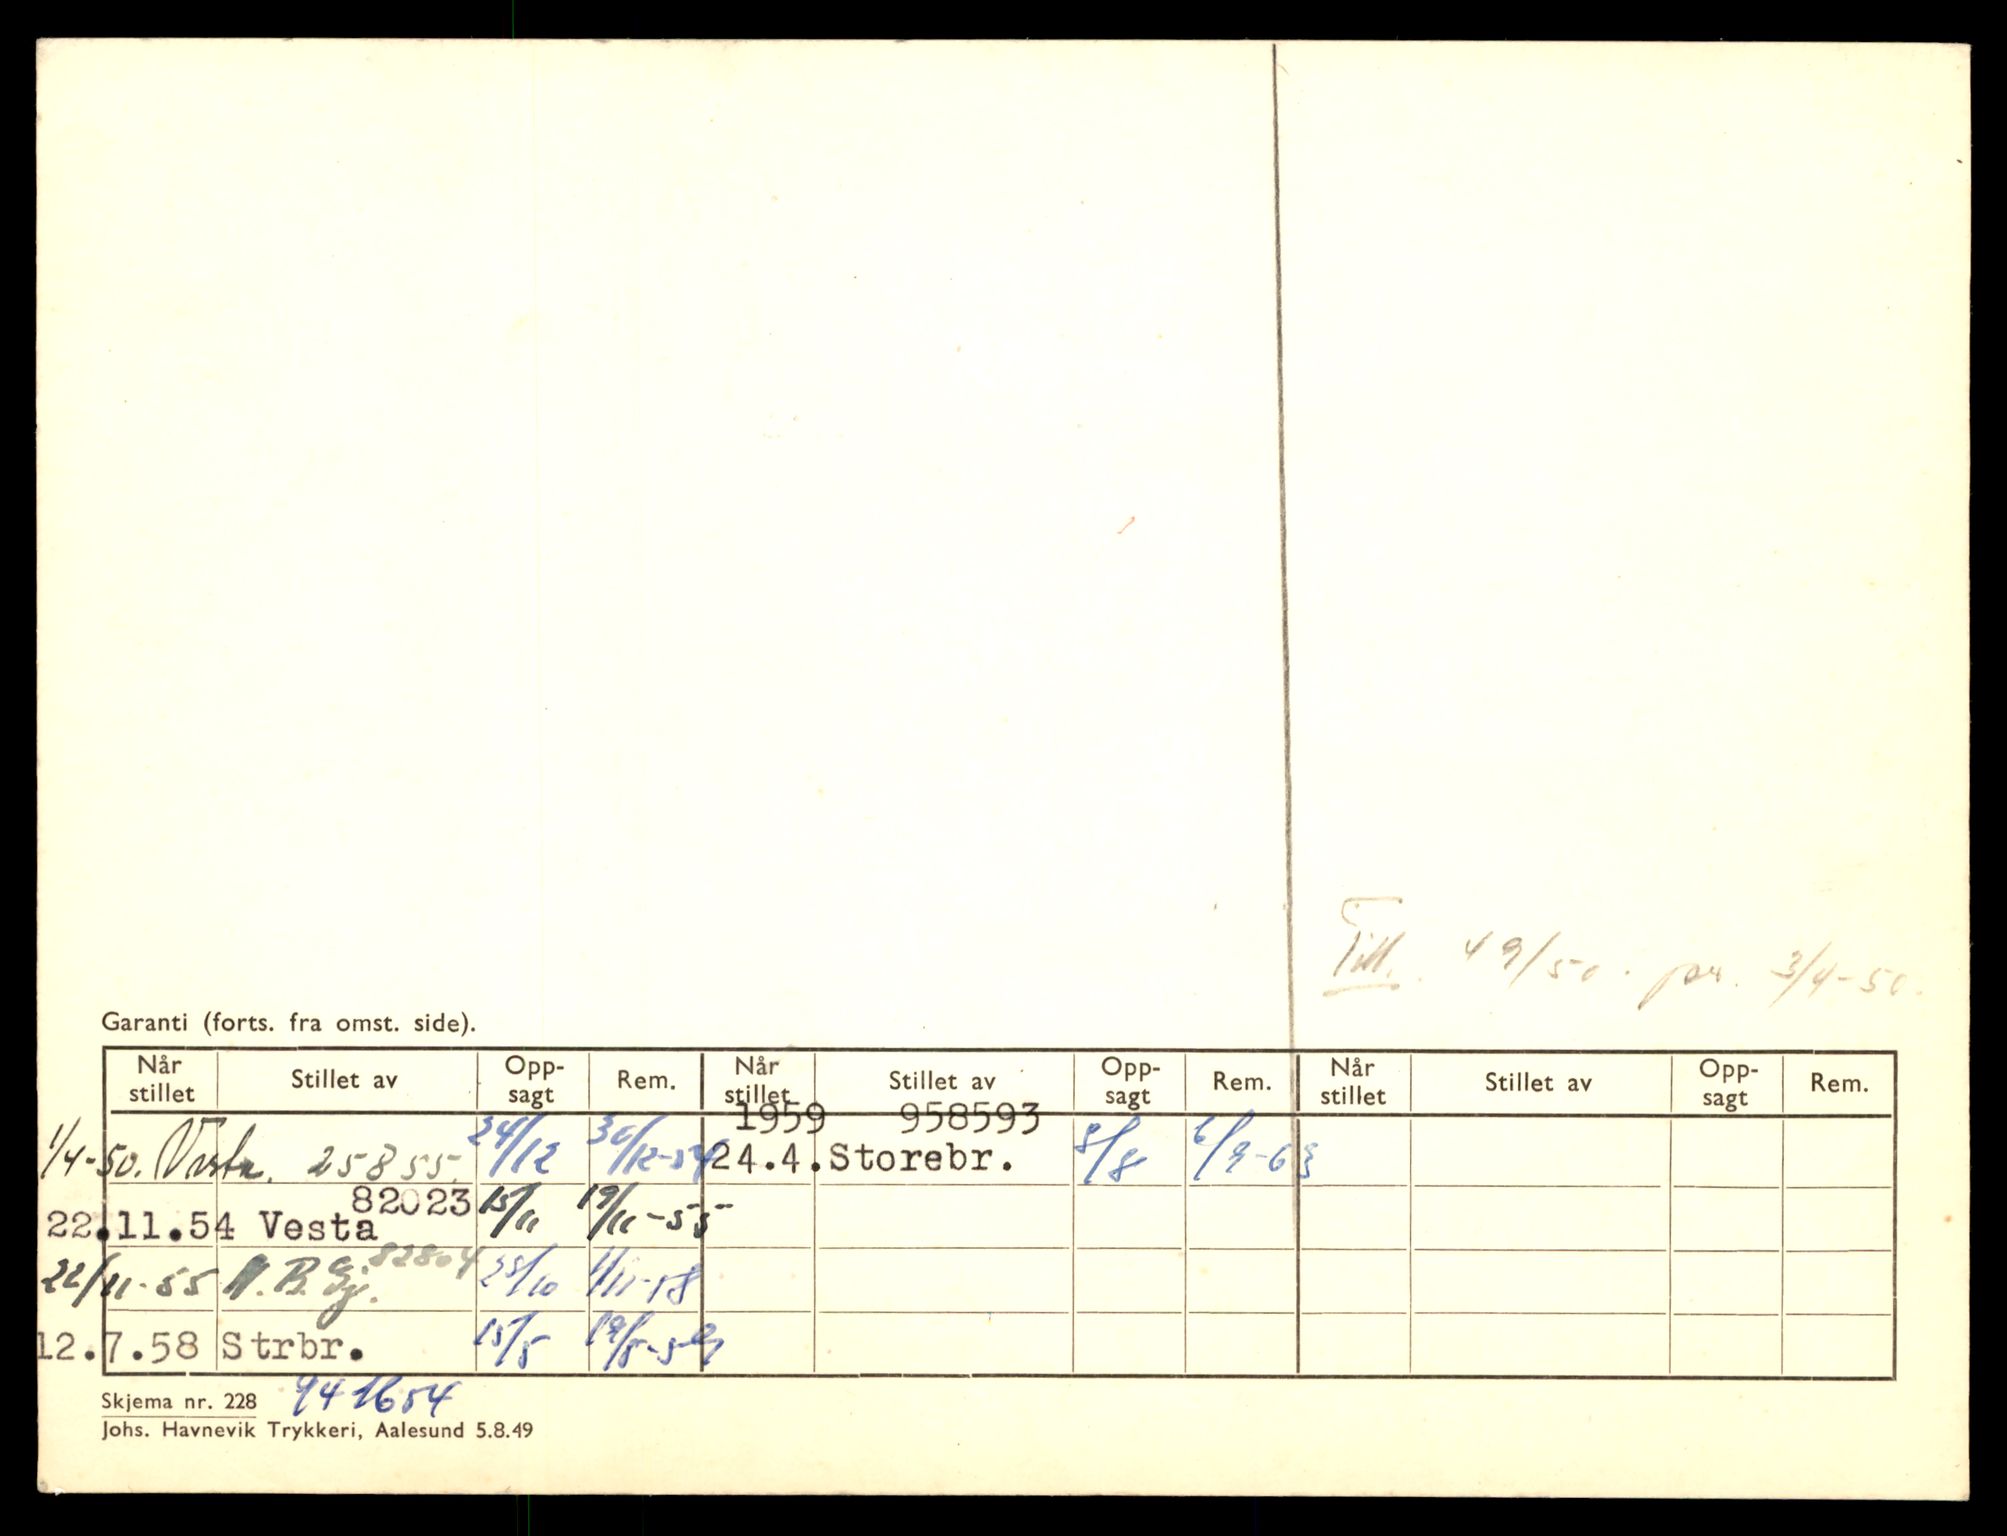 Till. 49/50. par. 3/4-50.
Garanti (forts. fra omst. side).
Når stillet Stillet av Opp-sagt Rem. Når stillet Stillet av Opp-sagt Rem. Når stillet Stillet av Opp-sagt Rem.
1959 958593
1/4-50. Vesta. 25855. 24/12 30/12-54 24.4. Storebr. 8/8 6/9-63
82023
22.11.54 Vesta 15/11 19/11-55
82804
22/11-55 N.B.Gj. 25/10 1/11-58
12.7.58 Strbr. 15/5 19/5-59
941654
Skjema nr. 228
Johs. Havnevik Trykkeri, Aalesund 5.8.49